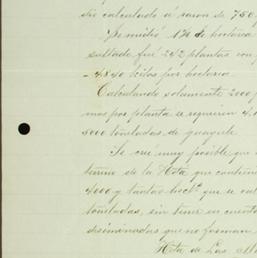 dio calculado á razon de 750
Se midió 1% de hectaria
sultado fué 242 plantas con
- 4840 kilos por hectaria
Calculando solamente 2000
mos por planta se requieren 4.0
8000 toneladas de guayule.
Se cré muy posible que
terreno de la Hota que contiene
4000 y tantas hect.s que se cal
toneladas, sin tener en cuenta
diseminadas que no forman
Hota de Las Ma